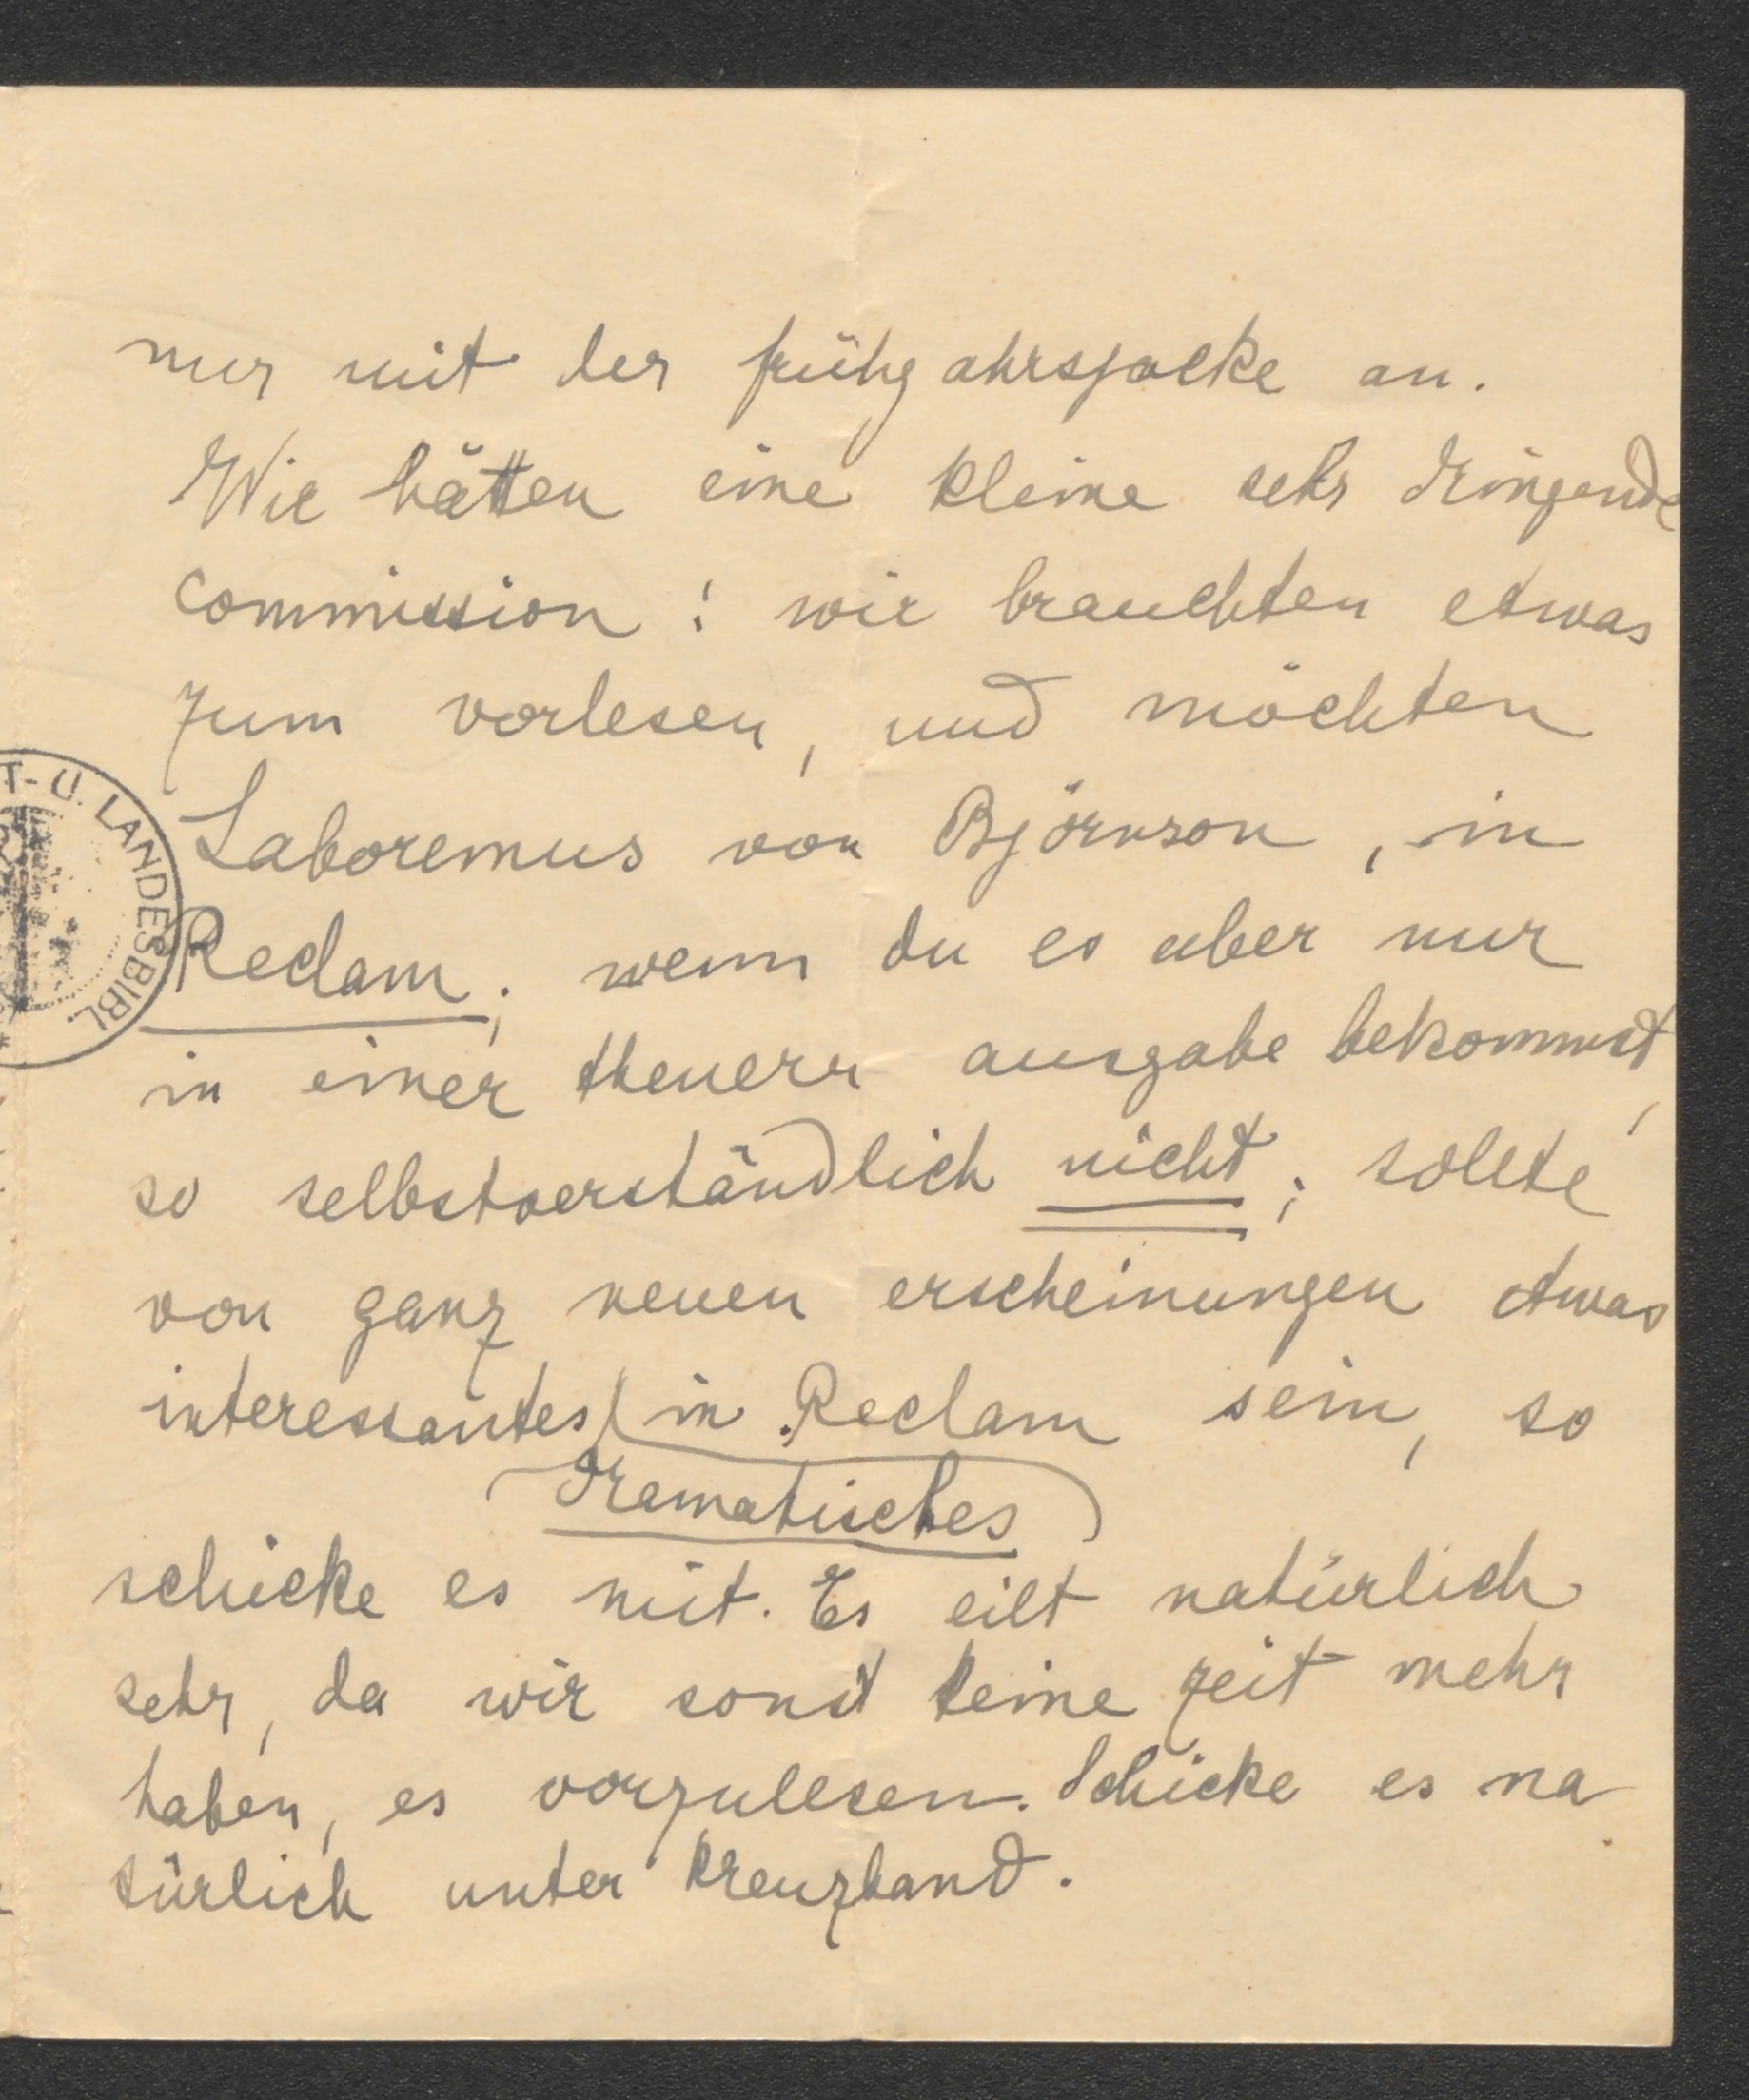 nur mit der frühjahrsjacke an.
Wir hätten eine kleine sehr dringende
commission : wir brauchten etwas
zum vorlesen, und möchten
Laboremus von Björnson, in
Reclam; wenn du es aber nur
in einer theuern ausgabe bekommst,
so selbstverständlich nicht; sollte
von ganz neuen erscheinungen etwas
interessantes in Reclam sein, so
dramatisches
schicke es mit. Es eilt natürlich
sehr, da wir sonst keine zeit mehr
haben, es vorzulesen. Schicke es na
türlich unter kreuzband.
T- U. LANDESBIBL.